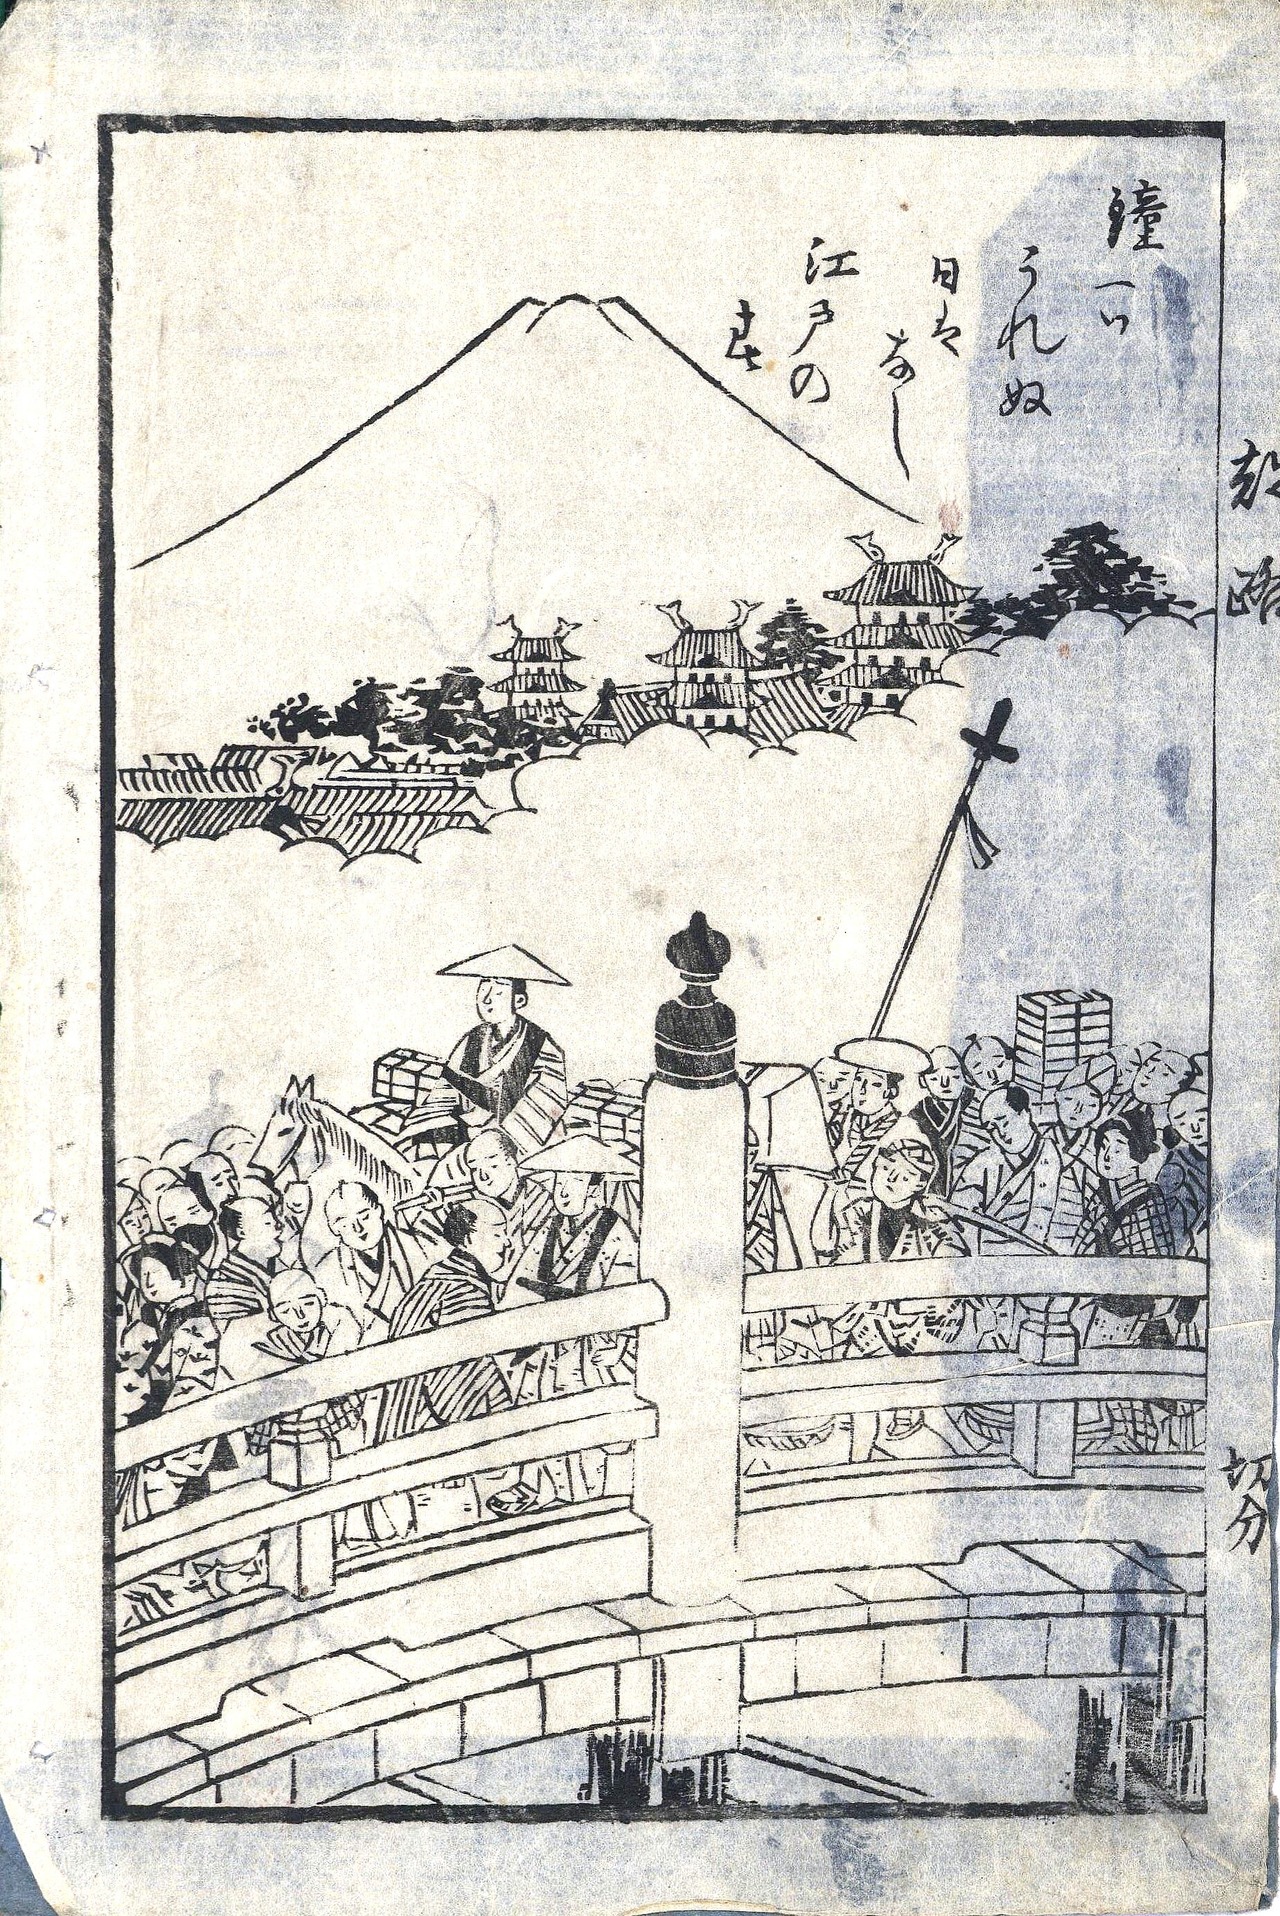 切分
鐘一ツ
うれぬ
日は
なし
江戸の
春